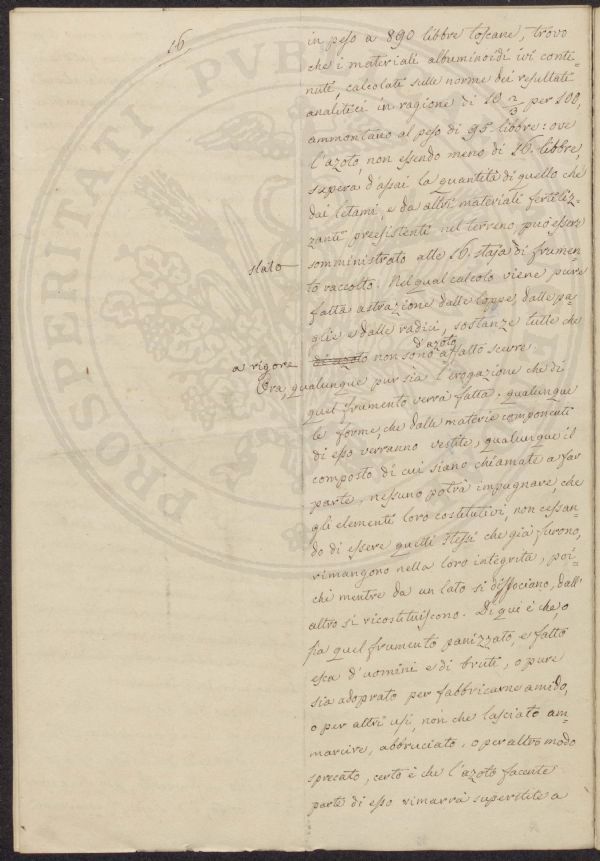 16
in peso a 890 libbre toscane, trovo
che i materiali albuminoidi ivi conte-
nuti, calcolati sulle norme dei resultati
analitici in ragione di 10 2/3 per 100,
ammontano al peso di 95 libbre: ove
l'azoto, non essendo meno di 16. libbre,
supera d'assai la quantità di quello che
dai letami, e da altri materiali fertiliz-
zanti preesistenti nel terreno, può essere
stato
somministrato alle 16. staja di frumen-
to raccolto. Nel qual calcolo viene pure
fatta astrazione dalle loppe, dalle pa-
glie e dalle radici, sostanze tutte che
a rigore di azoto non sono d'azoto affatto scevre.
Ora, qualunque pur sia l'erogazione che di
quel frumento verrà fatta. qualunque
le forme, che dalle materie componenti
di esso verranno vestite, qualunque il
composto di cui siano chiamate a far
parte, nessuno potrà impugnare, che
gli elementi loro costitutivi, non cessan-
do di essere quelli stessi che già furono,
rimangono nella loro integrità, poi-
chè mentre da un lato si dissociano, dall'
altro si ricostituiscono. Di qui è che, o
sia quel frumento panizzato, e fatto
esca d'uomini e di bruti, o pure
sia adoprato per fabbricarne amido,
o per altri usi, non che lasciato am-
marcire, abbruciato, o per altro modo
sprecato, certo è che l'azoto facente
parte di esso rimarrà superstite a
PROSPERITATI PUBLI